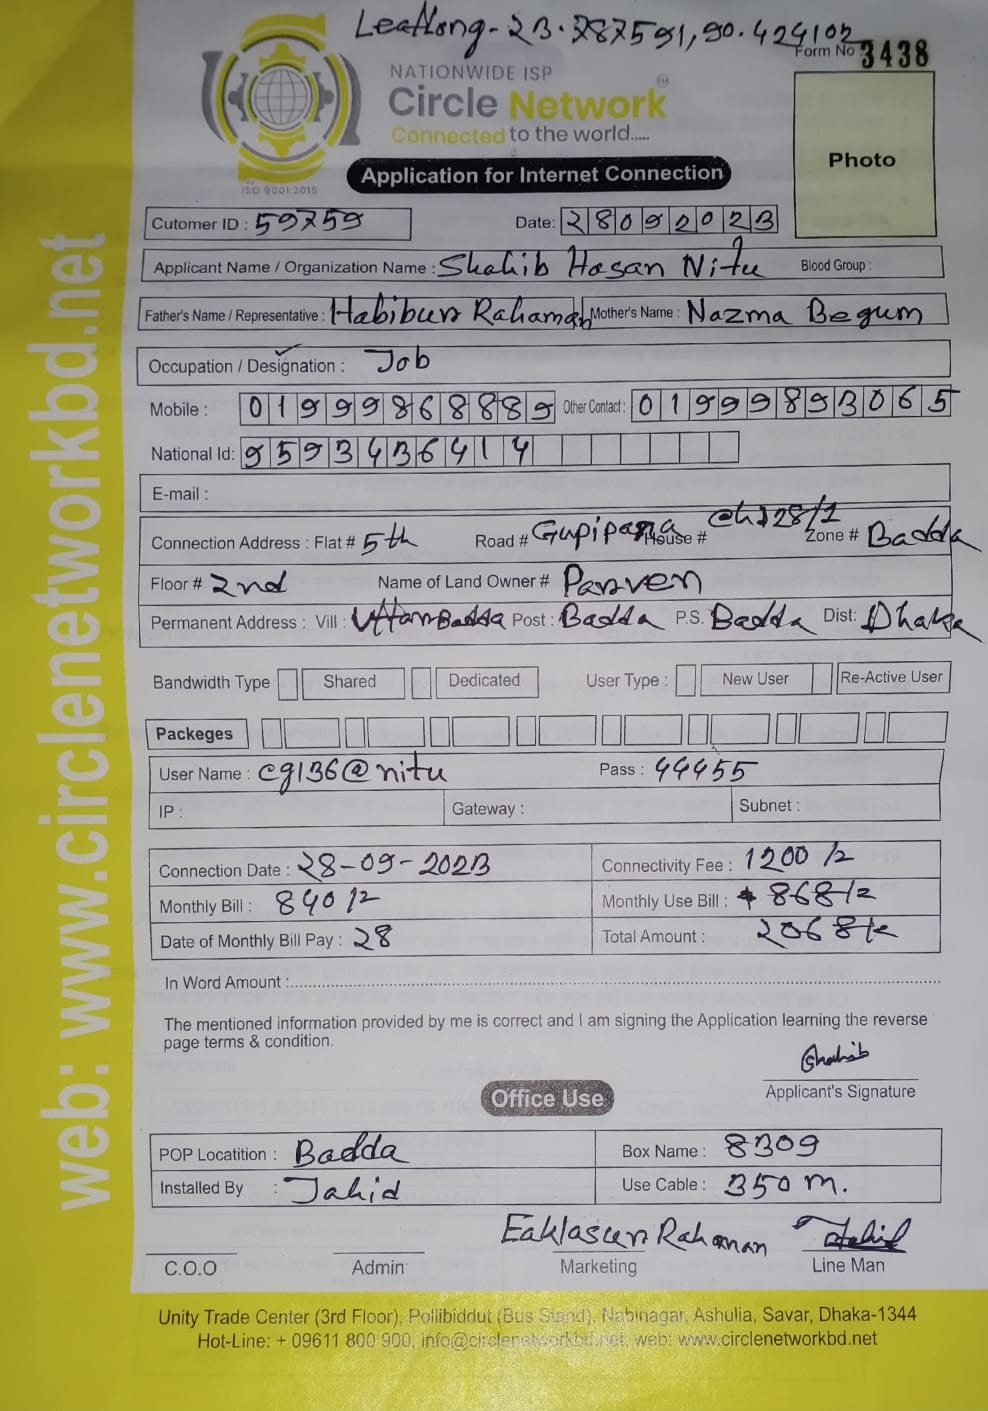 Leatlong - 23.787591, 90.424102
Form No 3438
NATIONWIDE ISP
Circle Network TM
Connected to the world.....
ISO 9001:2015
Application for Internet Connection
Photo
Cutomer ID : 59759 Date: 28092023
Applicant Name / Organization Name : Shahib Hasan Nitu Blood Group :
Father's Name / Representative : Habibur Rahaman Mother's Name : Nazma Begum
Occupation / Designation : Job
Mobile : 01999868889 Other Contact : 01999893065
National Id: 9593436414
E-mail :
Connection Address : Flat # 5th Road # Gupipara House # Zone # Badda
Floor # 2nd Name of Land Owner # Parven
Permanent Address : Vill : Uttar Badda Post : Badda P.S. Badda Dist: Dhaka
Bandwidth Type Shared Dedicated User Type : New User Re-Active User
Packeges
User Name : cg136@nitu Pass : 44455
IP : Gateway : Subnet :
Connection Date : 28-09-2023 Connectivity Fee : 1200/=
Monthly Bill : 840/= Monthly Use Bill : 868/=
Date of Monthly Bill Pay : 28 Total Amount : 2068/=
In Word Amount :
The mentioned information provided by me is correct and I am signing the Application learning the reverse
page terms & condition.
Shahib
Applicant's Signature
Office Use
POP Locatition : Badda Box Name : 8309
Installed By : Jahid Use Cable : 350 m.
Eaklasur Rahaman Jahid
C.O.O Admin Marketing Line Man
Unity Trade Center (3rd Floor), Pollibiddut (Bus Stand), Nabinagar, Ashulia, Savar, Dhaka-1344
Hot-Line: + 09611 800 900, info@circlenetworkbd.net, web: www.circlenetworkbd.net
web: www.circlenetworkbd.net